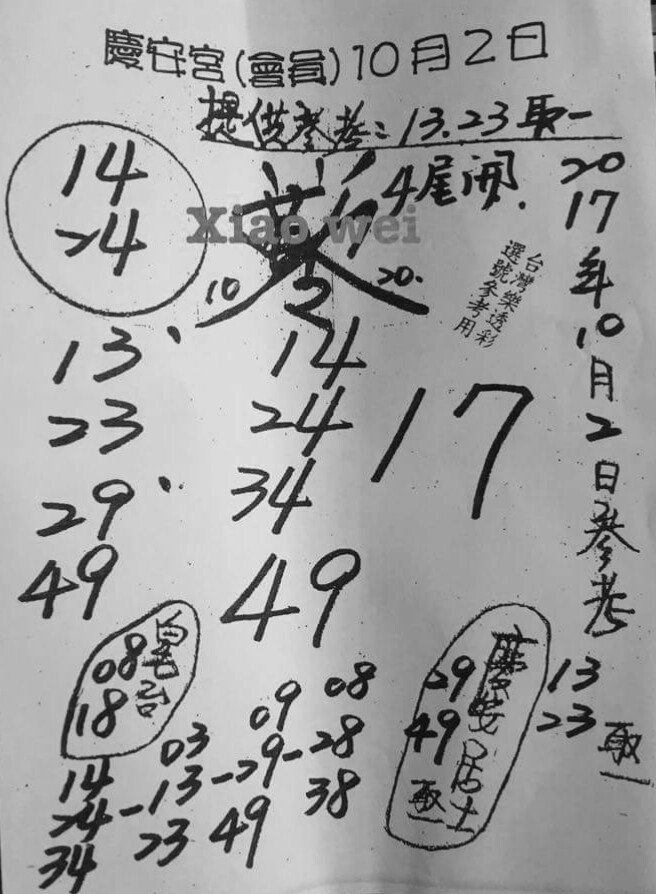 慶安宮(會員)10月2日
提供參考:13.23取一
14
24
4尾開.
Xiao wei
10
2
20.
台灣樂透彩
選號參考用
2017年10月2日參考
13
23
29
49
14
24
34
49
17
08
18
09
08
03
14
24-13-29-28
34
23
49
38
慶安居士
29
49
取一
13
23
取一